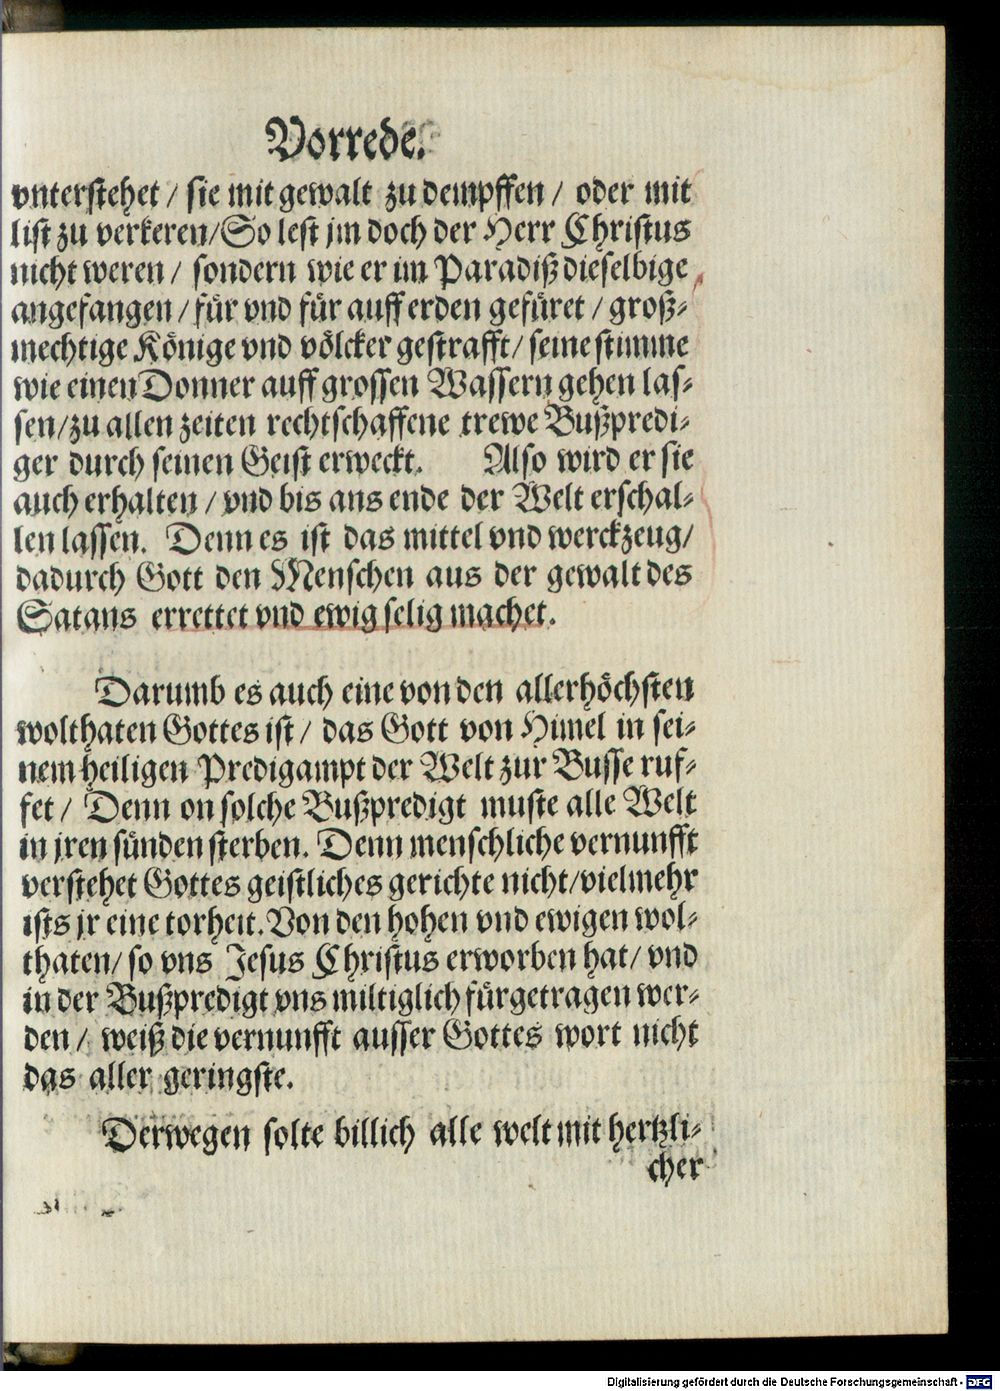 Vorrede.
vnterstehet / sie mit gewalt zu dempffen / oder mit
list zu verkeren/So lest jm doch der Herr Christus
nicht weren / sondern wie er im Paradiß dieselbige
angefangen / für vnd für auff erden gefüret / groß-
mechtige Könige vnd völcker gestrafft/ seine stimme
wie einen Donner auff grossen Wassern gehen las-
sen/zu allen zeiten rechtschaffene trewe Bußpredi-
ger durch seinen Geist erweckt. Also wird er sie
auch erhalten / vnd bis ans ende der Welt erschal-
len lassen. Denn es ist das mittel vnd werckzeug/
dadurch Gott den Menschen aus der gewalt des
Satans errettet vnd ewig selig machet.
Darumb es auch eine von den allerhöchsten
wolthaten Gottes ist / das Gott von Himel in sei-
nem heiligen Predigampt der Welt zur Busse ruf-
fet / Denn on solche Bußpredigt muste alle Welt
in jren sünden sterben. Denn menschliche vernunfft
verstehet Gottes geistliches gerichte nicht/vielmehr
ists jr eine torheit. Von den hohen vnd ewigen wol-
thaten/ so vns Jesus Christus erworben hat/ vnd
in der Bußpredigt vns miltiglich fürgetragen wer-
den / weiß die vernunfft ausser Gottes wort nicht
das aller geringste.
Derwegen solte billich alle welt mit hertzli-
cher
Digitalisierung gefördert durch die Deutsche Forschungsgemeinschaft - DFG